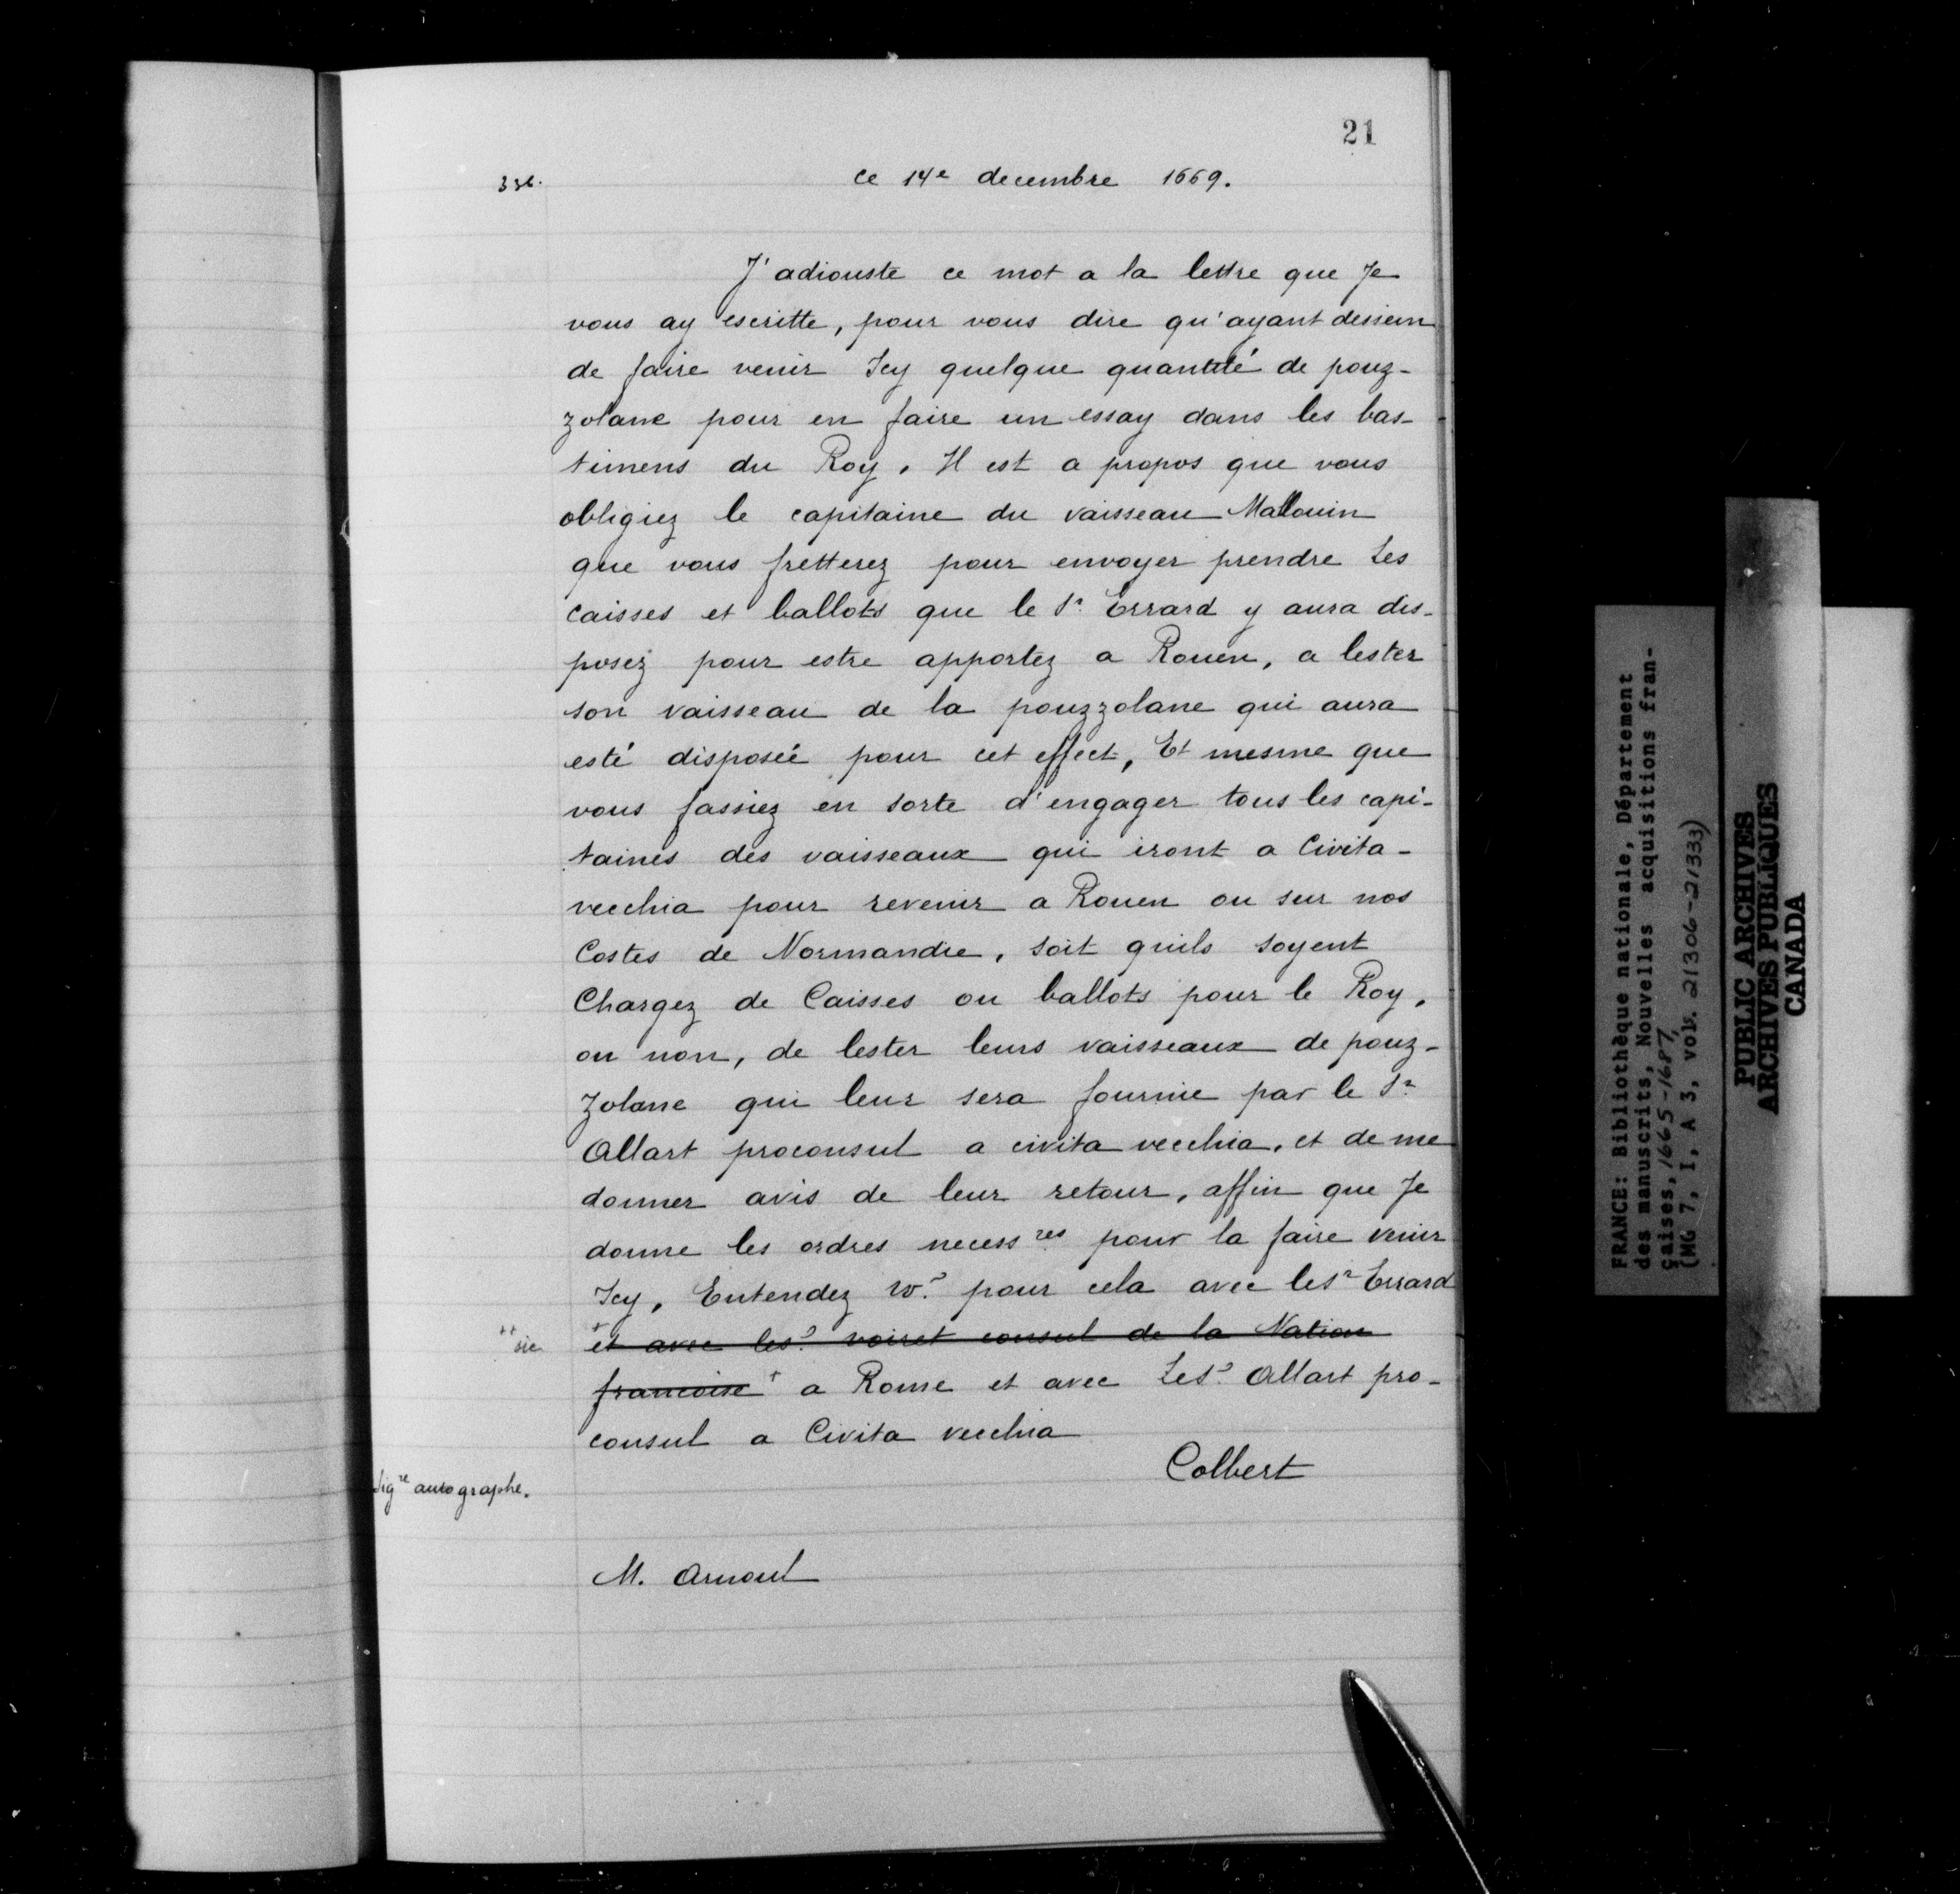 21
336.
ce 14e decembre 1669.
J'adiouste ce mot a la lettre que Je
vous ay escritte, pour vous dire qu'ayant dessein
de faire venir Icy quelque quantité de pouz-
zolane pour en faire un essay dans les bas-
timens du Roy. Il est a propos que vous
obligiez le capitaine du vaisseau Mallouin
que vous fretterez pour envoyer prendre Les
caisses et ballots que le Sr. Errard y aura dis-
posez pour estre apportez a Rouen, a lester
son vaisseau de la pouzzolane qui aura
esté disposée pour cet effect, Et mesme que
vous fassiez en sorte d'engager tous les capi-
taines des vaisseaux qui iront a Civita-
vecchia pour revenir a Rouen ou sur nos
Costes de Normandie, soit quils soyent
Chargez de Caisses ou ballots pour le Roy,
ou non, de lester leurs vaisseaux de pouz-
zolane qui leur sera fournie par le Sr.
Allart proconsul a civita vecchia, et de me
donner avis de leur retour, affin que Je
donne les ordres necessres pour la faire venir
Icy, Entendez vo.s pour cela avec le Sr Errard
++ sic
+et avec le sr. voiret consul de la Nation
francoise+ a Rome et avec Le Sr. Allart pro-
consul a Civita vecchia
Colbert
Sigre autographe.
M. Arnoul
FRANCE: Bibliothèque nationale, Département
des manuscrits, Nouvelles acquisitions fran-
çaises, 1665-1687,
(MG 7, I, A 3, vols. 21306-21333)
PUBLIC ARCHIVES
ARCHIVES PUBLIQUES
CANADA